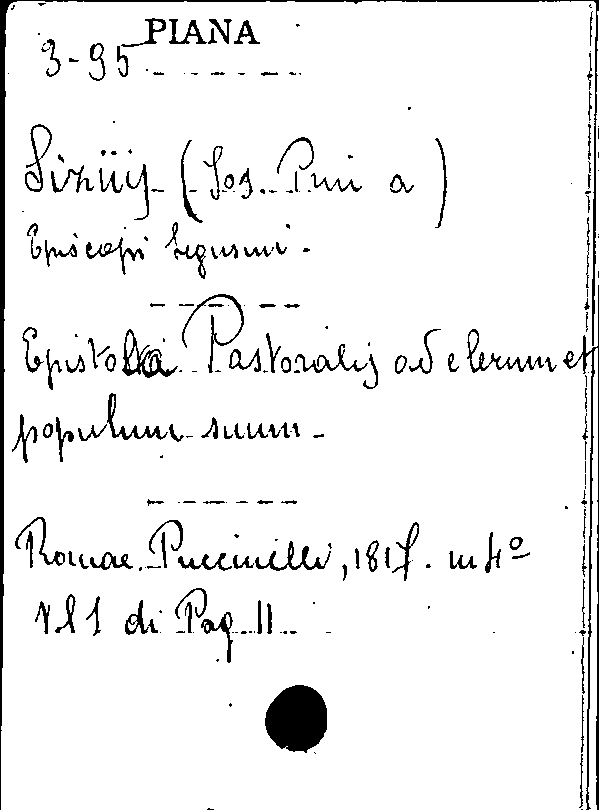 PIANA
3-95
(Jos. Prini a)
Episcopi Segusini.
Epistola Pastoralis ad clerum et
populum suum.
Romae. Puccinelli, 1817. in 4º
Vl 1 di Pag 11